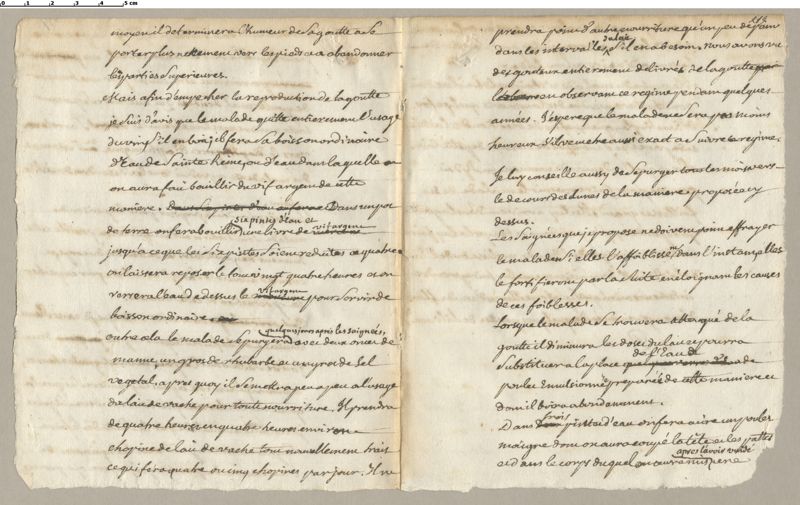 0 1 2 3 4 5 cm
moyen il determinera l'humeur de sa goutte a se
porter plus nettement vers les pieds et a abandonner
les parties superieures.
Mais afin d'empecher la reproduction de la goutte
je suis d'avis que le malade quitte entierement l'usage
du vin s'il en boit, il fera sa boisson ordinaire
d'Eau de Sainte Reine, ou d'eau dans laquelle on
on aura fait bouillir du vif argent de cette
maniere. Dans un pot
six pintes d'eau et
de terre on fera bouillir une livre de vif argent
jusqu'a ce que les six pintes soient reduites a quatre
on laissera reposer le tout vingt quatre heures et on
vif argent
versera l'eau de dessus le pour servir de
boisson ordinaire.
quelques jours apres les saignées,
outre cela le malade se purgera avec deux onces de
manne, un gros de rhubarbe et un gros de sel
vegetal, apres quoy il se mettra peu a peu a l'usage
du lait de vache pour toute nourriture. Il prendra
de quatre heures en quatre heures environ
chopine de lait de vache tout nouvellement trait
ce qui fera quatre ou cinq chopines par jour. Il ne
prendra point d'autre nourriture qu'un peu de pain
dans les intervalles du lait s'il en a besoin. nous avons vu
des gouteux entierement delivrés de la goutte
en observant ce regime pendant quelques
années. J'espere que le malade ne sera pas moins
heureux s'il veut etre aussi exact a suivre ce regime.
Je luy conseille aussy de se purger tous les mois vers
le decours des lunes de la maniere proposée cy
dessus.
Les saignées que je propose ne doivent point effrayer
le malade. Si elles l'affoiblissent dans l'instant, elles
le fortifieront par la suite en eloignant les causes
de ces foiblesses.
Lorsque le malade se trouvera attaqué de la
goutte il diminuera les doses du lait et pourra
de l'Eau de
substituer a la place
poulet Emulsionnée preparée de cette maniere et
dont il boira abondamment.
Dans trois pintes d'eau on fera cuire un poulet
maigre dont on aura coupé la tête et les pattes
apres l'avoir vuidé
et dans le corps duquel on aura mis